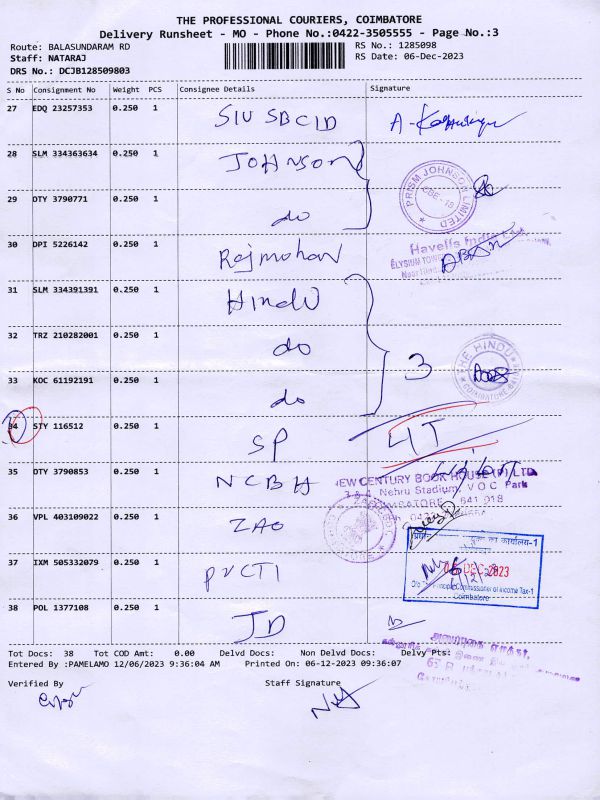 THE PROFESSIONAL COURIERS, COIMBATORE
Delivery Runsheet - MO - Phone No.:0422-3505555 - Page No.:3
Route: BALASUNDARAM RD
RS No.: 1285098
Staff: NATARAJ
RS Date: 06-Dec-2023
DRS No.: DCJB128509803
S No Consignment No Weight PCS Consignee Details Signature
27 EDQ 23257353 0.250 1 SIU SBCID
28 SLM 334363634 0.250 1 JOHNSON
PRISM JOHNSON LIMITED
29 DTY 3790771 0.250 1 do
30 DPI 5226142 0.250 1 Rajmohan
Havells India
ELYSIUM TOW
31 SLM 334391391 0.250 1 Hindu
32 TRZ 210282001 0.250 1 do
3
THE HINDU
33 KOC 61192191 0.250 1 do
34 STY 116512 0.250 1 SP
35 DTY 3790853 0.250 1 NCBH
NEW CENTURY BOOK HOUSE (P) LTD
Nehru Stadium, V O C Park
641 018
36 VPL 403109022 0.250 1 ZAO
का कार्यालय-1
37 IXM 505332079 0.250 1 PVCTI
DEC 2023
O/o The Principal Commissioner of Income Tax-1
Coimbatore
38 POL 1377108 0.250 1 JD
Tot Docs: 38 Tot COD Amt: 0.00 Delvd Docs: Non Delvd Docs: Delvy Pts:
Entered By :PAMELAMO 12/06/2023 9:36:04 AM Printed On: 06-12-2023 09:36:07
Verified By
Staff Signature